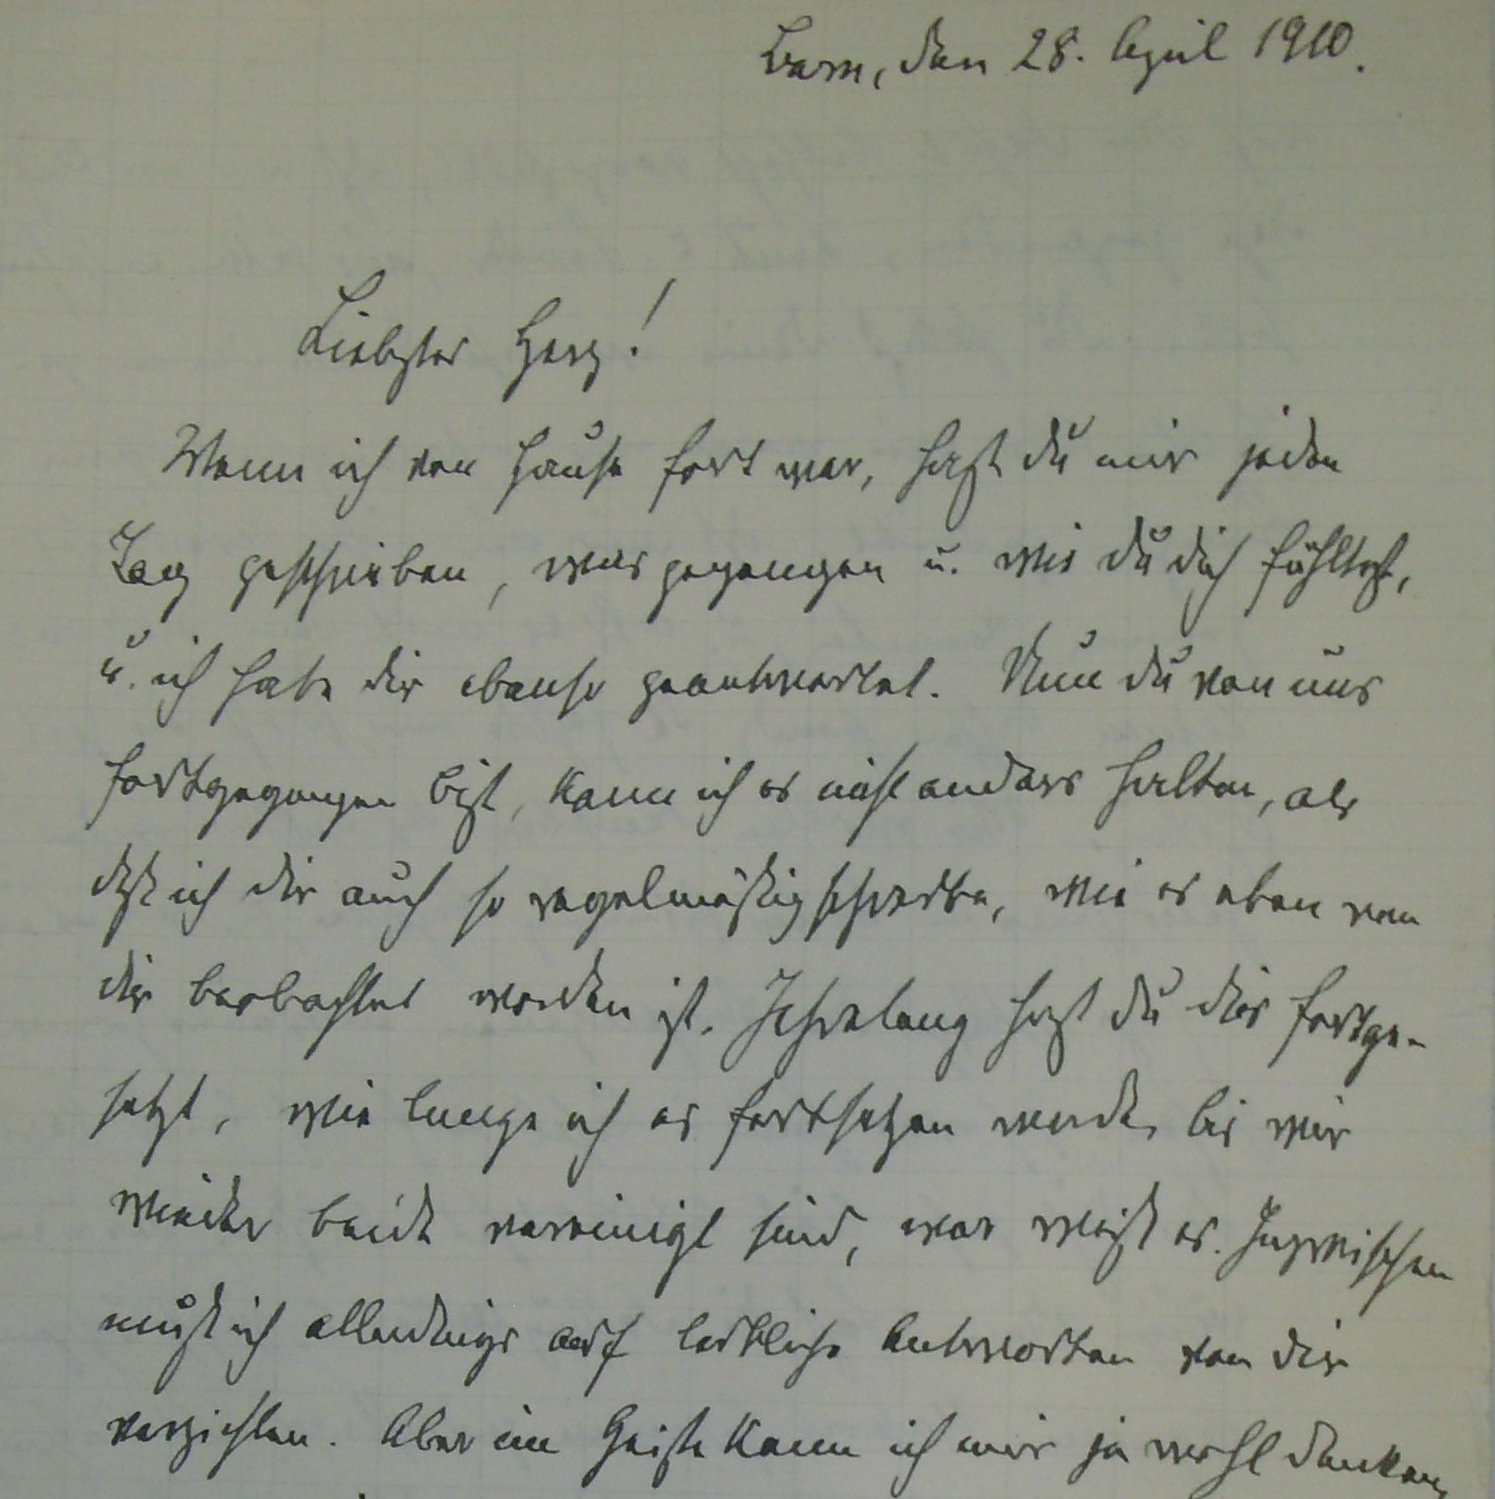 Bern, den 28. April 1910.
Liebstes Herz!
Wenn ich von Hause fort war, hast du mir jeden
Tag geschrieben, was gegangen u. wie du dich fühltest,
u. ich habe dir ebenso geantwortet. Nun du von uns
fortgegangen bist, kann ich es nicht anders halten, als
daß ich dir auch so regelmäßig schreibe, wie es eben von
dir beobachtet worden ist. Jahrelang hast du dies fortge-
setzt, wie lange ich es fortsetzen werde, bis wir
wieder beide vereinigt sind, wer weiß es. Inzwischen
muß ich allerdings auf leibliche Antworten von dir
verzichten. Aber im Geiste kann ich mir ja wohl denken,